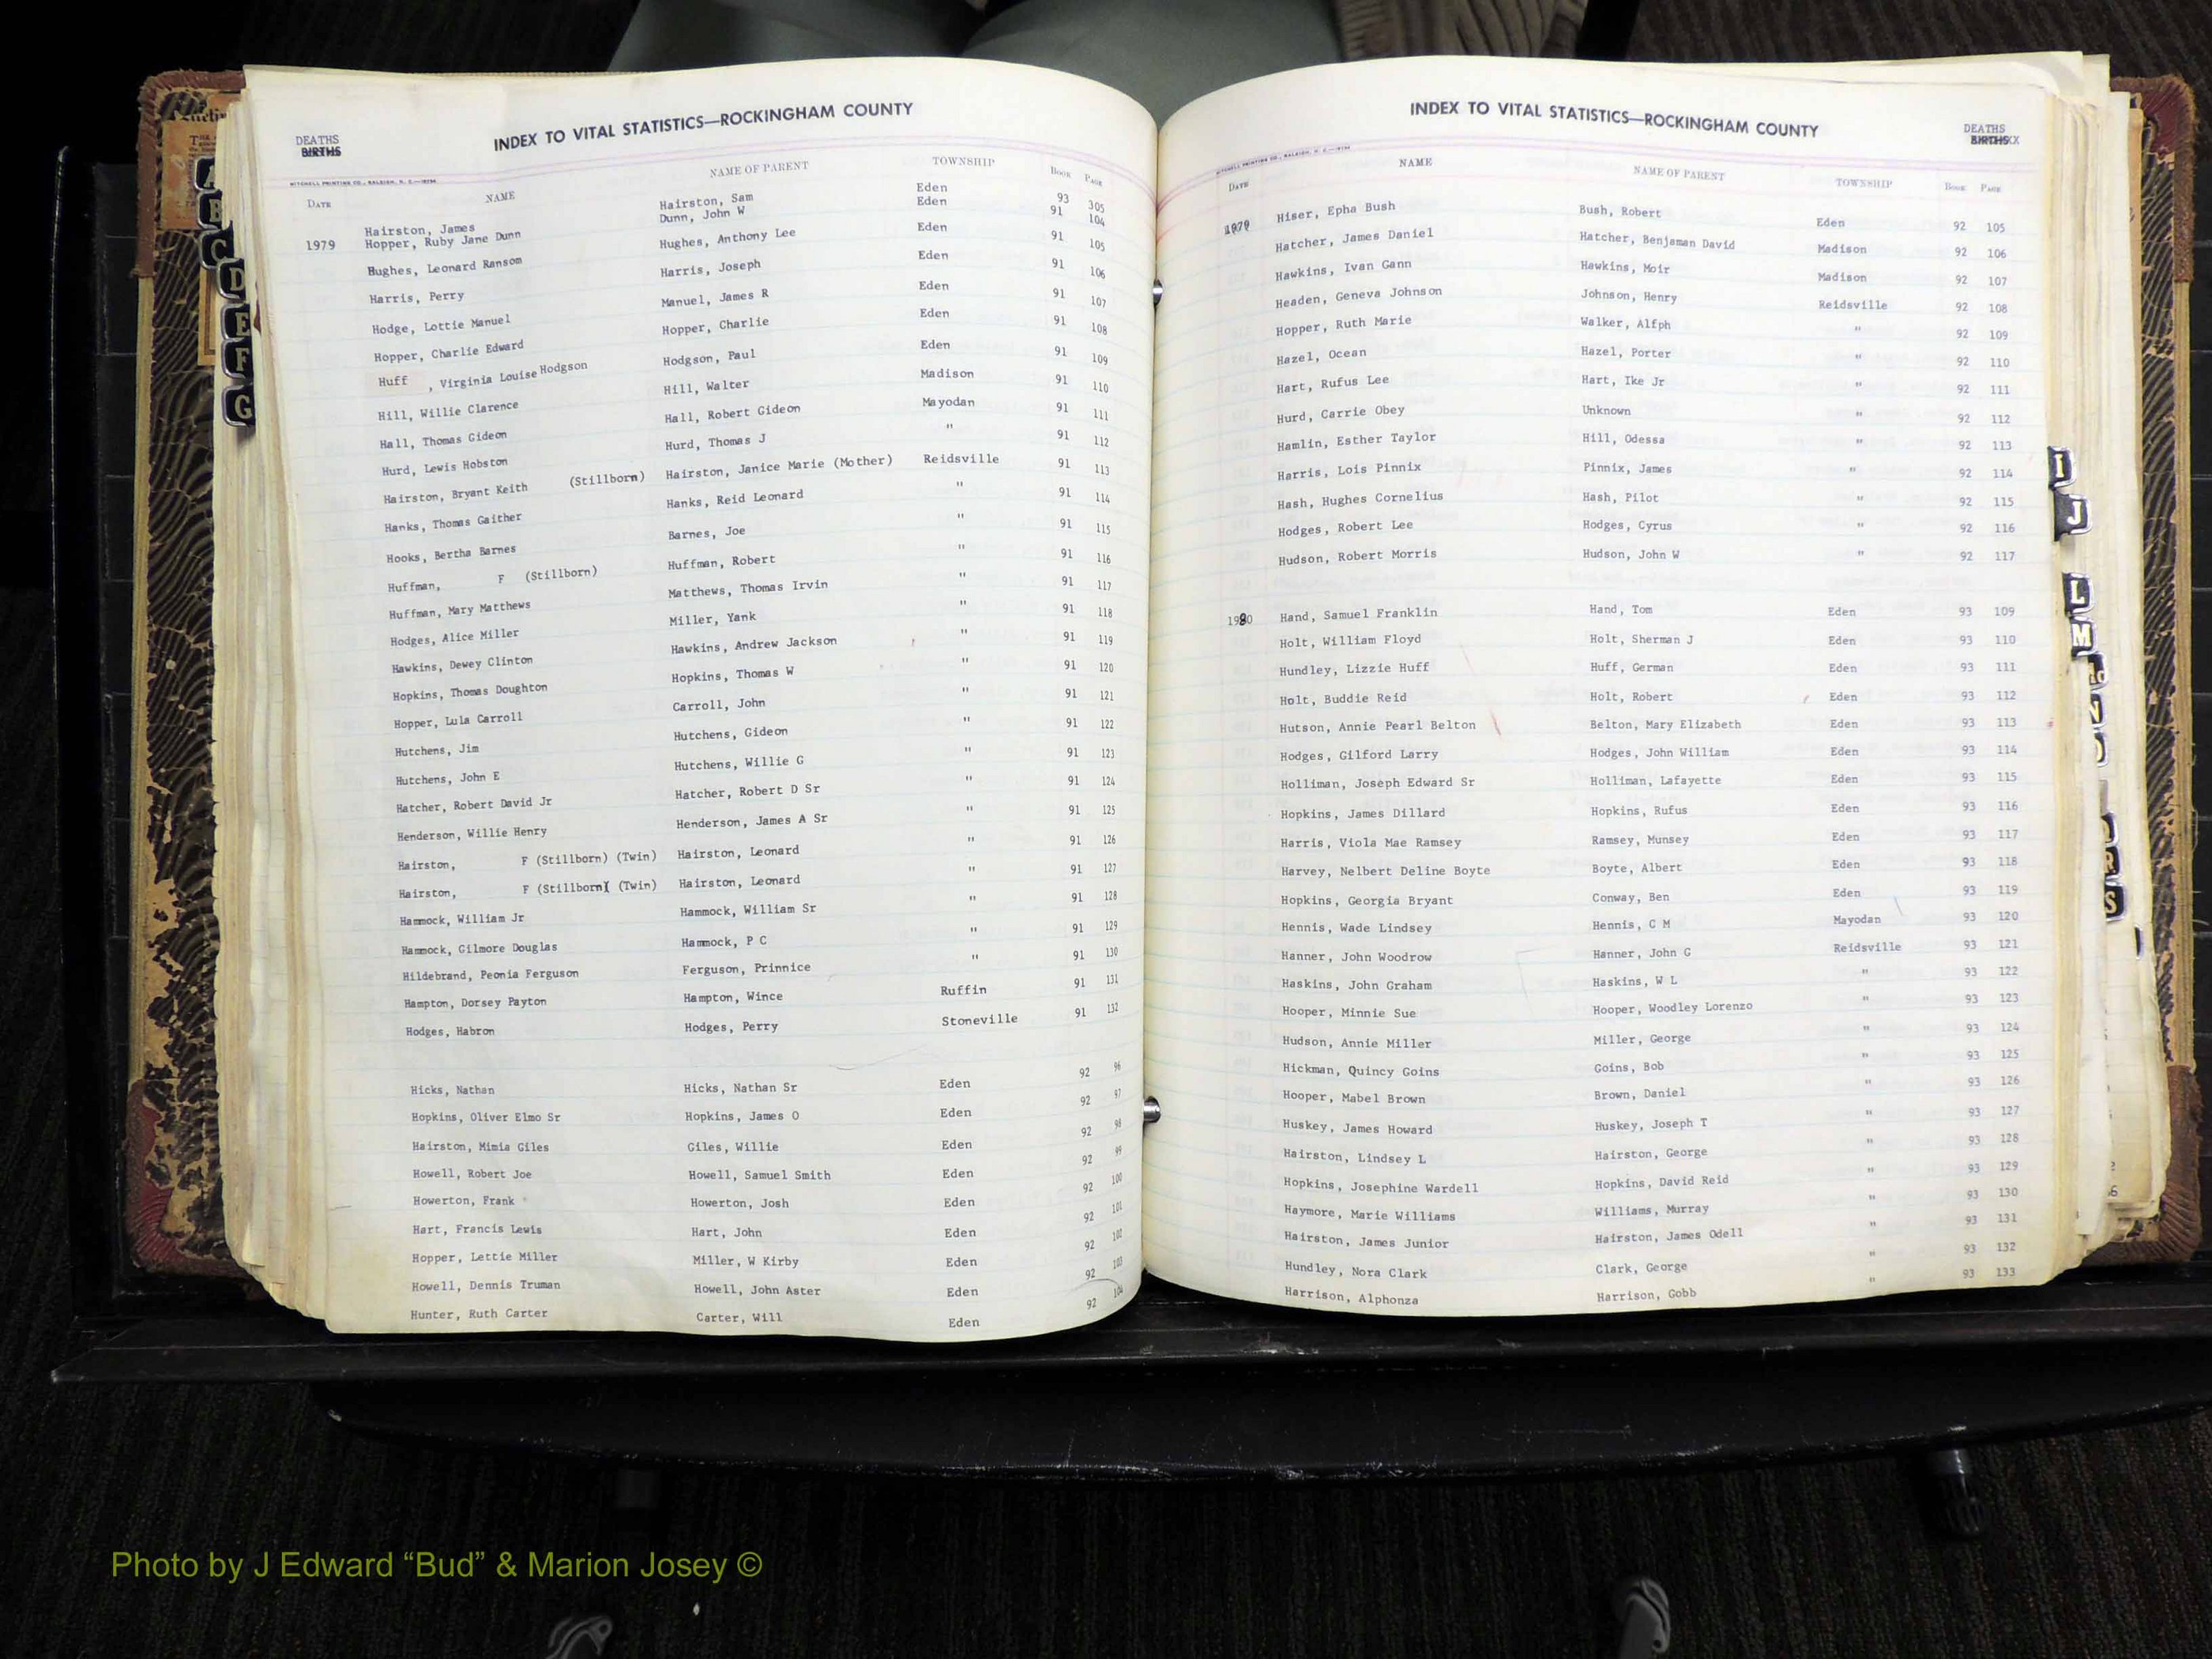 INDEX TO VITAL STATISTICS—ROCKINGHAM COUNTY
DEATHS
BIRTHS
MITCHELL PRINTING CO., RALEIGH, N. C.
DATE NAME NAME OF PARENT TOWNSHIP BOOK PAGE
Hairston, James Hairston, Sam Eden 93 305
1979 Hopper, Ruby Jane Dunn Dunn, John W Eden 91 104
Hughes, Leonard Ransom Hughes, Anthony Lee Eden 91 105
Harris, Perry Harris, Joseph Eden 91 106
Hodge, Lottie Manuel Manuel, James R Eden 91 107
Hopper, Charlie Edward Hopper, Charlie Eden 91 108
Huff , Virginia Louise Hodgson Hodgson, Paul Eden 91 109
Hill, Willie Clarence Hill, Walter Madison 91 110
Hall, Thomas Gideon Hall, Robert Gideon Mayodan 91 111
Hurd, Lewis Hobston Hurd, Thomas J " 91 112
Hairston, Bryant Keith (Stillborn) Hairston, Janice Marie (Mother) Reidsville 91 113
Hanks, Thomas Gaither Hanks, Reid Leonard " 91 114
Hooks, Bertha Barnes Barnes, Joe " 91 115
Huffman, F (Stillborn) Huffman, Robert " 91 116
Huffman, Mary Matthews Matthews, Thomas Irvin " 91 117
Hodges, Alice Miller Miller, Yank " 91 118
Hawkins, Dewey Clinton Hawkins, Andrew Jackson " 91 119
Hopkins, Thomas Doughton Hopkins, Thomas W " 91 120
Hopper, Lula Carroll Carroll, John " 91 121
Hutchens, Jim Hutchens, Gideon " 91 122
Hutchens, John E Hutchens, Willie G " 91 123
Hatcher, Robert David Jr Hatcher, Robert D Sr " 91 124
Henderson, Willie Henry Henderson, James A Sr " 91 125
Hairston, F (Stillborn) (Twin) Hairston, Leonard " 91 126
Hairston, F (Stillborn( (Twin) Hairston, Leonard " 91 127
Hammock, William Jr Hammock, William Sr " 91 128
Hammock, Gilmore Douglas Hammock, P C " 91 129
Hildebrand, Peonia Ferguson Ferguson, Prinnice " 91 130
Hampton, Dorsey Payton Hampton, Wince Ruffin 91 131
Hodges, Habron Hodges, Perry Stoneville 91 132
Hicks, Nathan Hicks, Nathan Sr Eden 92 96
Hopkins, Oliver Elmo Sr Hopkins, James O Eden 92 97
Hairston, Mimia Giles Giles, Willie Eden 92 98
Howell, Robert Joe Howell, Samuel Smith Eden 92 99
Howerton, Frank Howerton, Josh Eden 92 100
Hart, Francis Lewis Hart, John Eden 92 101
Hopper, Lettie Miller Miller, W Kirby Eden 92 102
Howell, Dennis Truman Howell, John Aster Eden 92 103
Hunter, Ruth Carter Carter, Will Eden 92 104
INDEX TO VITAL STATISTICS—ROCKINGHAM COUNTY
DEATHS
BIRTHSXX
MITCHELL PRINTING CO., RALEIGH, N. C.
DATE NAME NAME OF PARENT TOWNSHIP BOOK PAGE
1979 Hiser, Epha Bush Bush, Robert Eden 92 105
Hatcher, James Daniel Hatcher, Benjaman David Madison 92 106
Hawkins, Ivan Gann Hawkins, Moir Madison 92 107
Headen, Geneva Johnson Johnson, Henry Reidsville 92 108
Hopper, Ruth Marie Walker, Alfph " 92 109
Hazel, Ocean Hazel, Porter " 92 110
Hart, Rufus Lee Hart, Ike Jr " 92 111
Hurd, Carrie Obey Unknown " 92 112
Hamlin, Esther Taylor Hill, Odessa " 92 113
Harris, Lois Pinnix Pinnix, James " 92 114
Hash, Hughes Cornelius Hash, Pilot " 92 115
Hodges, Robert Lee Hodges, Cyrus " 92 116
Hudson, Robert Morris Hudson, John W " 92 117
1980 Hand, Samuel Franklin Hand, Tom Eden 93 109
Holt, William Floyd Holt, Sherman J Eden 93 110
Hundley, Lizzie Huff Huff, German Eden 93 111
Holt, Buddie Reid Holt, Robert Eden 93 112
Hutson, Annie Pearl Belton Belton, Mary Elizabeth Eden 93 113
Hodges, Gilford Larry Hodges, John William Eden 93 114
Holliman, Joseph Edward Sr Holliman, Lafayette Eden 93 115
Hopkins, James Dillard Hopkins, Rufus Eden 93 116
Harris, Viola Mae Ramsey Ramsey, Munsey Eden 93 117
Harvey, Nelbert Deline Boyte Boyte, Albert Eden 93 118
Hopkins, Georgia Bryant Conway, Ben Eden 93 119
Hennis, Wade Lindsey Hennis, C M Mayodan 93 120
Hanner, John Woodrow Hanner, John G Reidsville 93 121
Haskins, John Graham Haskins, W L " 93 122
Hooper, Minnie Sue Hooper, Woodley Lorenzo " 93 123
Hudson, Annie Miller Miller, George " 93 124
Hickman, Quincy Goins Goins, Bob " 93 125
Hooper, Mabel Brown Brown, Daniel " 93 126
Huskey, James Howard Huskey, Joseph T " 93 127
Hairston, Lindsey L Hairston, George " 93 128
Hopkins, Josephine Wardell Hopkins, David Reid " 93 129
Haymore, Marie Williams Williams, Murray " 93 130
Hairston, James Junior Hairston, James Odell " 93 131
Hundley, Nora Clark Clark, George " 93 132
Harrison, Alphonza Harrison, Gobb " 93 133
A
B
C
D
E
F
G
I
J
L
M
N
R
S
Photo by J Edward “Bud” & Marion Josey ©